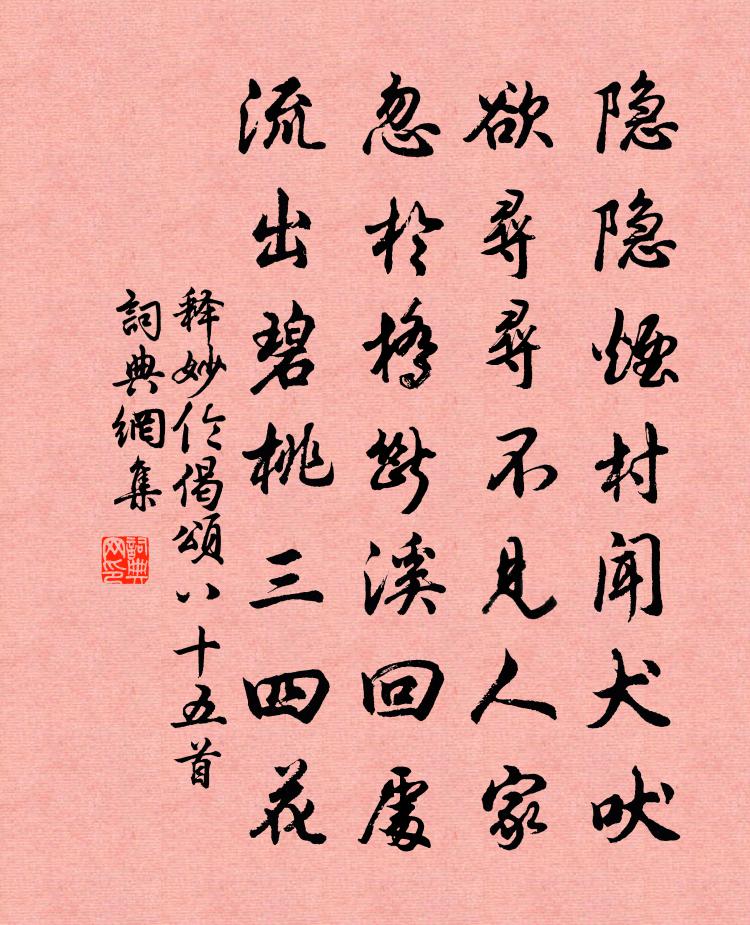 隐隐煙村闻犬吠
欲尋尋不見人家
忽於橋斷溪回處
流出碧桃三四花
释妙伦偈頌八十五首
詞典網集
詞典網印